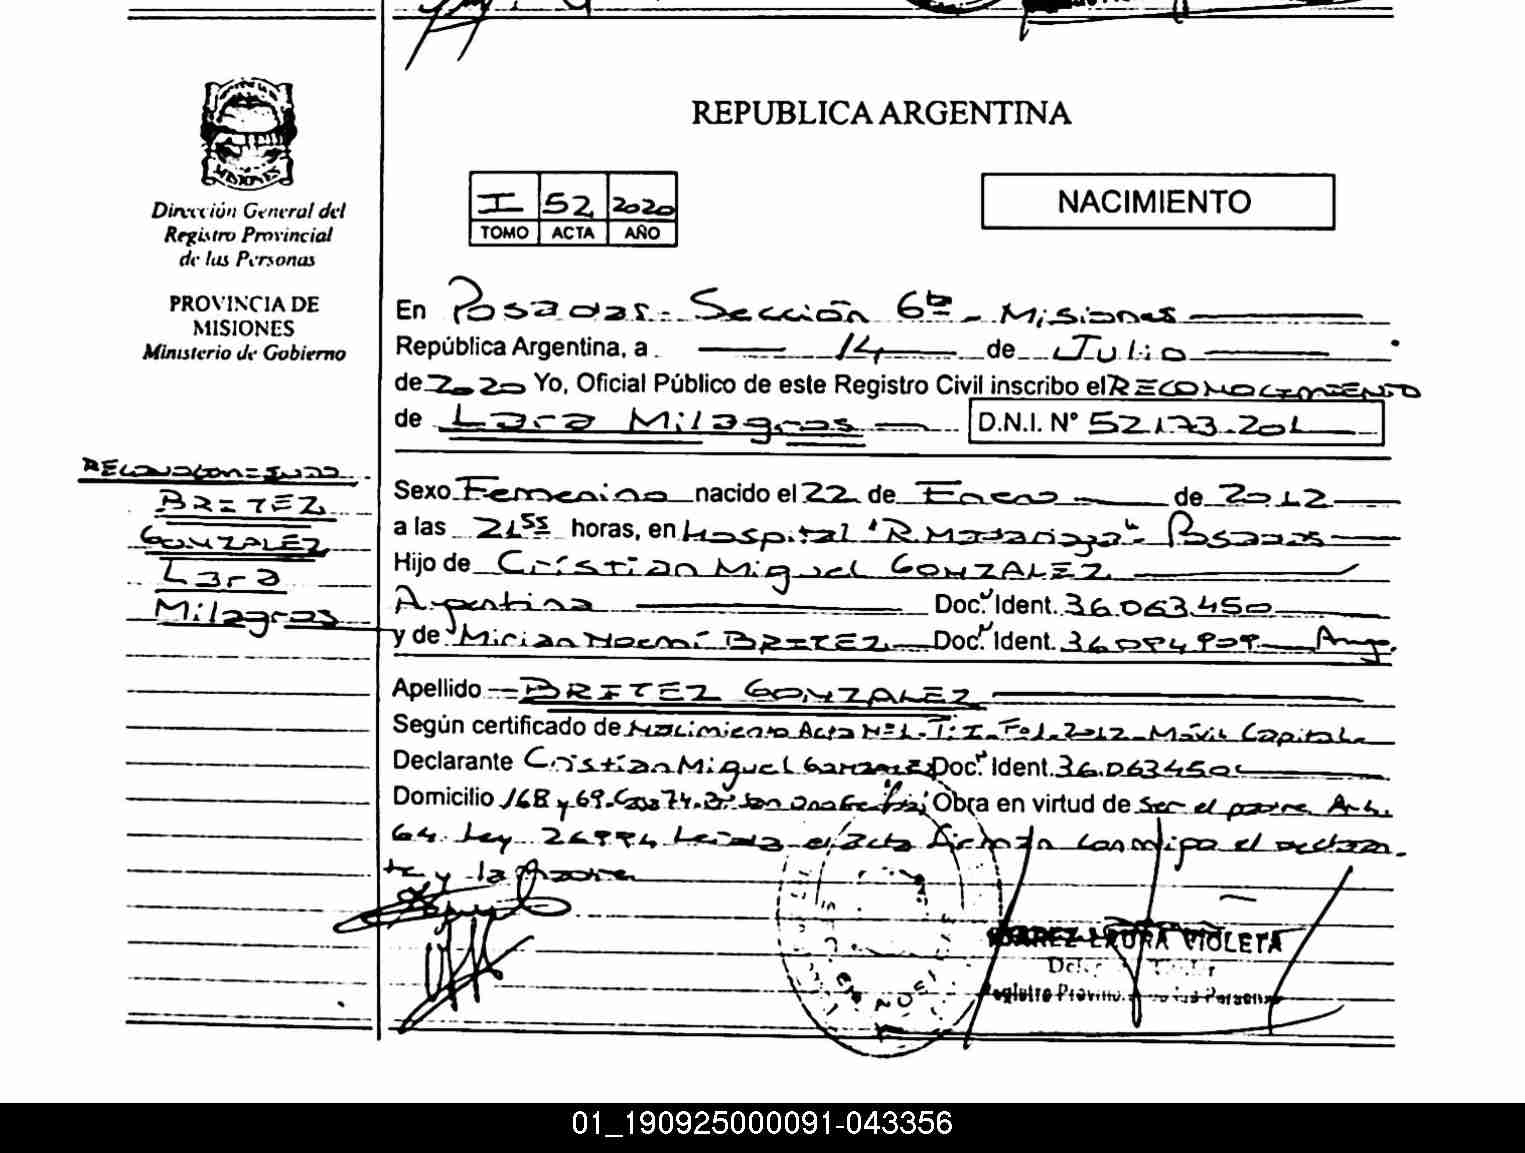 REPUBLICA ARGENTINA
MISIONES
Dirección General del
Registro Provincial
de las Personas
PROVINCIA DE
MISIONES
Ministerio de Gobierno
I 52 2020
TOMO ACTA AÑO
NACIMIENTO
En Posadas - Sección 6ta - Misiones
República Argentina, a 14 de Julio
de 2020 Yo, Oficial Público de este Registro Civil inscribo el RECONOCIMIENTO
de Lara Milagros D.N.I. Nº 52.173.201
BRITEZ
GONZALEZ
Lara
Milagros
Sexo Femenino nacido el 22 de Enero de 2012
a las 21 55 horas, en Hospital "R. Madariaga" - Posadas
Hijo de Cristian Miguel GONZALEZ
Argentina Doc. Ident. 36.063.450
y de Mirian Noemí BRITEZ Doc. Ident. 36.094.909 Arg.
Apellido BRITEZ GONZALEZ
Según certificado de Nacimiento Acta Nº 1 - T: I - Fº 1 - 2012 - Móvil Capital
Declarante Cristian Miguel GONZALEZ Doc. Ident. 36.063.450
Domicilio 168 y 69. Casa 74. Obra en virtud de ser el padre Art.
64 Ley 26994 Leída el acta firman conmigo el declaran-
te y la madre
LAURA VIOLETA
Registro Provin. de las Personas
01_190925000091-043356